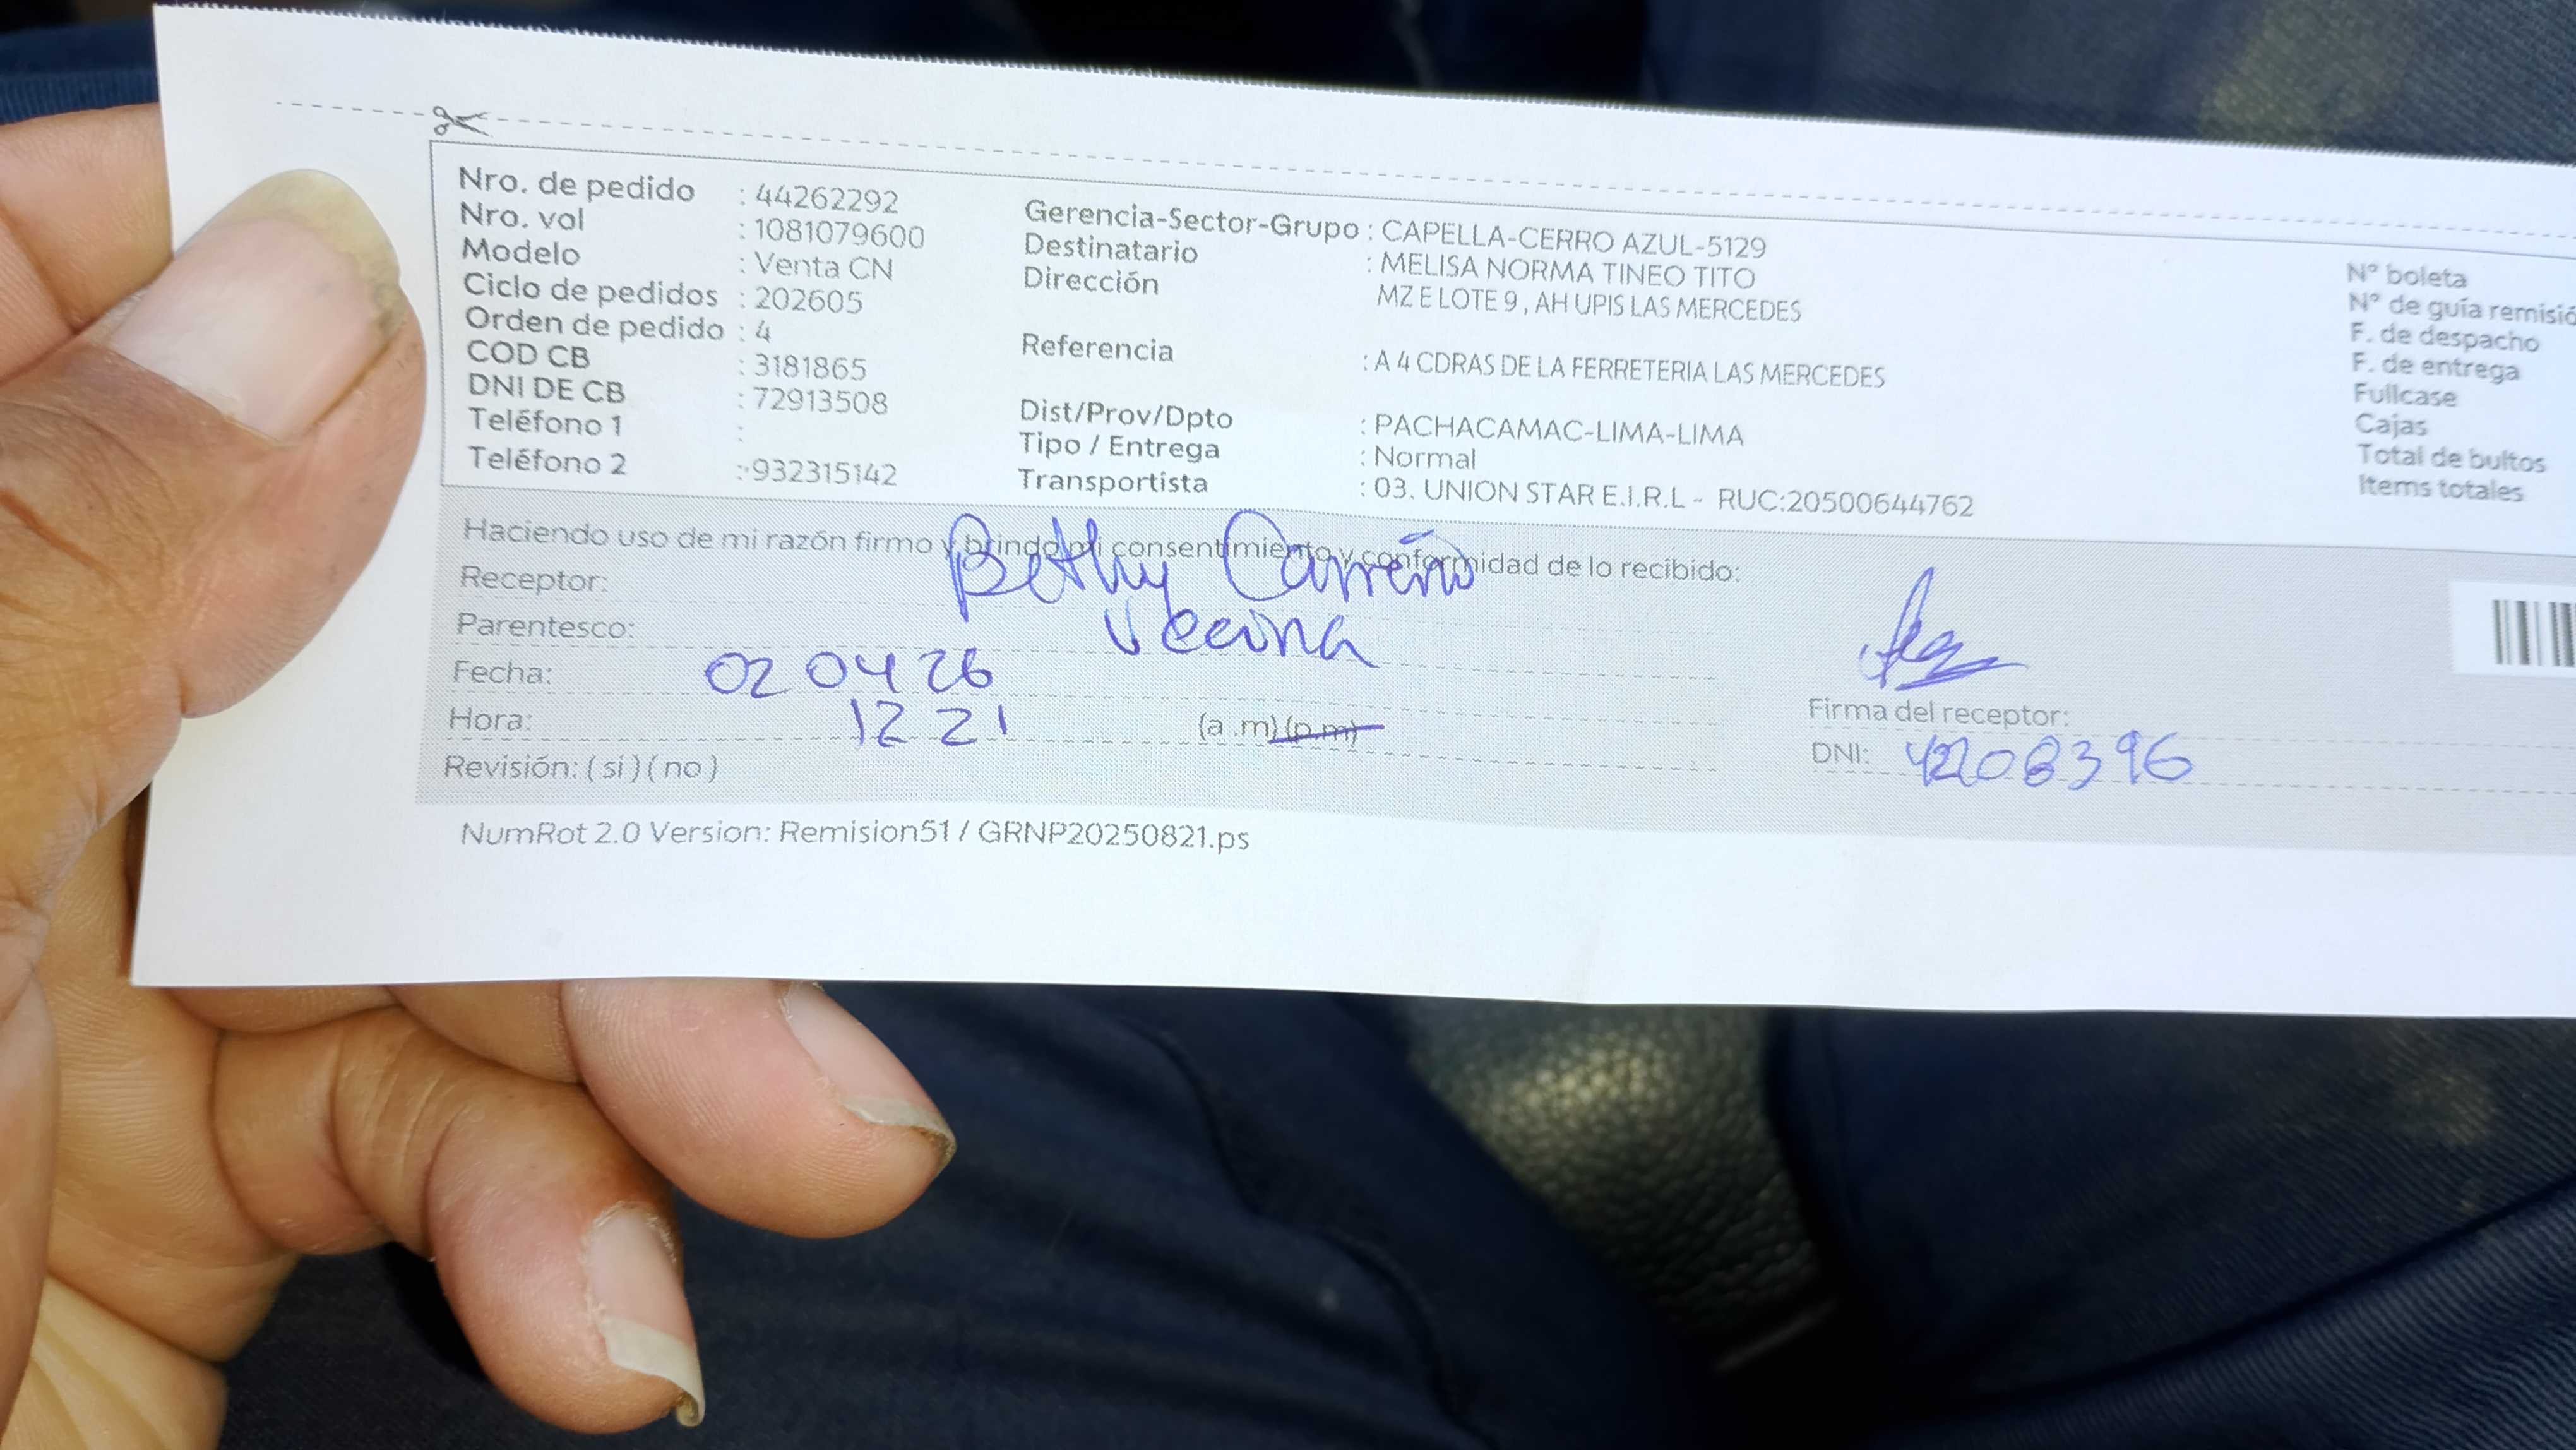 Nro. de pedido : 44262292
Nro. vol : 1081079600
Modelo : Venta CN
Ciclo de pedidos : 202605
Orden de pedido : 4
COD CB : 3181865
DNI DE CB : 72913508
Teléfono 1 :
Teléfono 2 : 932315142
Gerencia-Sector-Grupo : CAPELLA-CERRO AZUL-5129
Destinatario : MELISA NORMA TINEO TITO
Dirección MZ E LOTE 9 , AH UPIS LAS MERCEDES
Referencia : A 4 CDRAS DE LA FERRETERIA LAS MERCEDES
Dist/Prov/Dpto : PACHACAMAC-LIMA-LIMA
Tipo / Entrega : Normal
Transportista : 03. UNION STAR E.I.R.L - RUC:20500644762
N° boleta
N° de guía remisió
F. de despacho
F. de entrega
Fullcase
Cajas
Total de bultos
Items totales
Haciendo uso de mi razón firmo y brindo mi consentimiento y conformidad de lo recibido:
Receptor: Bethy Carreño
Parentesco: Vecina
Fecha: 02 04 26
Hora: 12 21 (a .m) (p.m)
Revisión: ( si ) ( no )
Firma del receptor:
DNI: 8396
NumRot 2.0 Version: Remision51 / GRNP20250821.ps